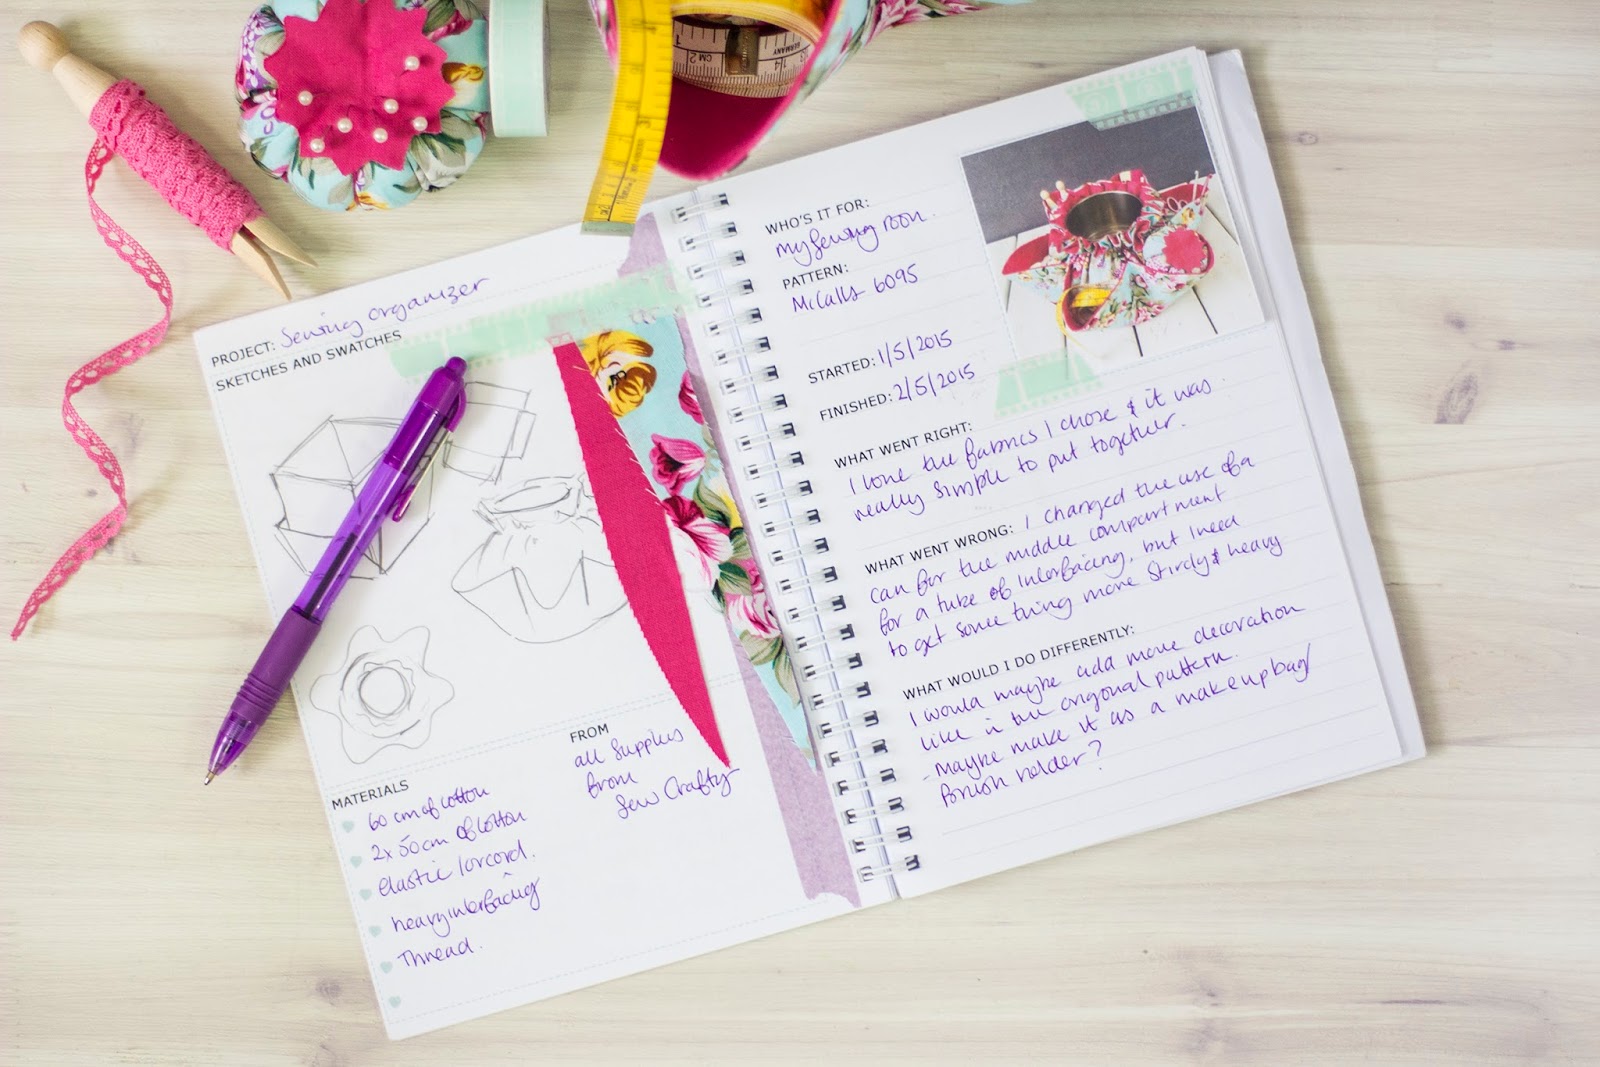 PROJECT: Sewing organizer
SKETCHES AND SWATCHES
MATERIALS
60 cm of cotton
2x 50cm of cotton
elastic / orcord.
heavy interfacing
Thread.
FROM
all supplies
from
Sew Crafty
WHO'S IT FOR:
my sewing room.
PATTERN:
McCalls 6095
STARTED: 1/5/2015
FINISHED: 2/5/2015
WHAT WENT RIGHT:
I love the fabrics I chose & it was
really simple to put together.
WHAT WENT WRONG: I changed the use of a
can for the middle compartment
for a tube of interfacing, but I need
to get something more sturdy & heavy
WHAT WOULD I DO DIFFERENTLY:
I would maybe add more decoration
like in the origonal pattern.
- Maybe make it as a makeup bag/
brush holder?
GERMANY
CM